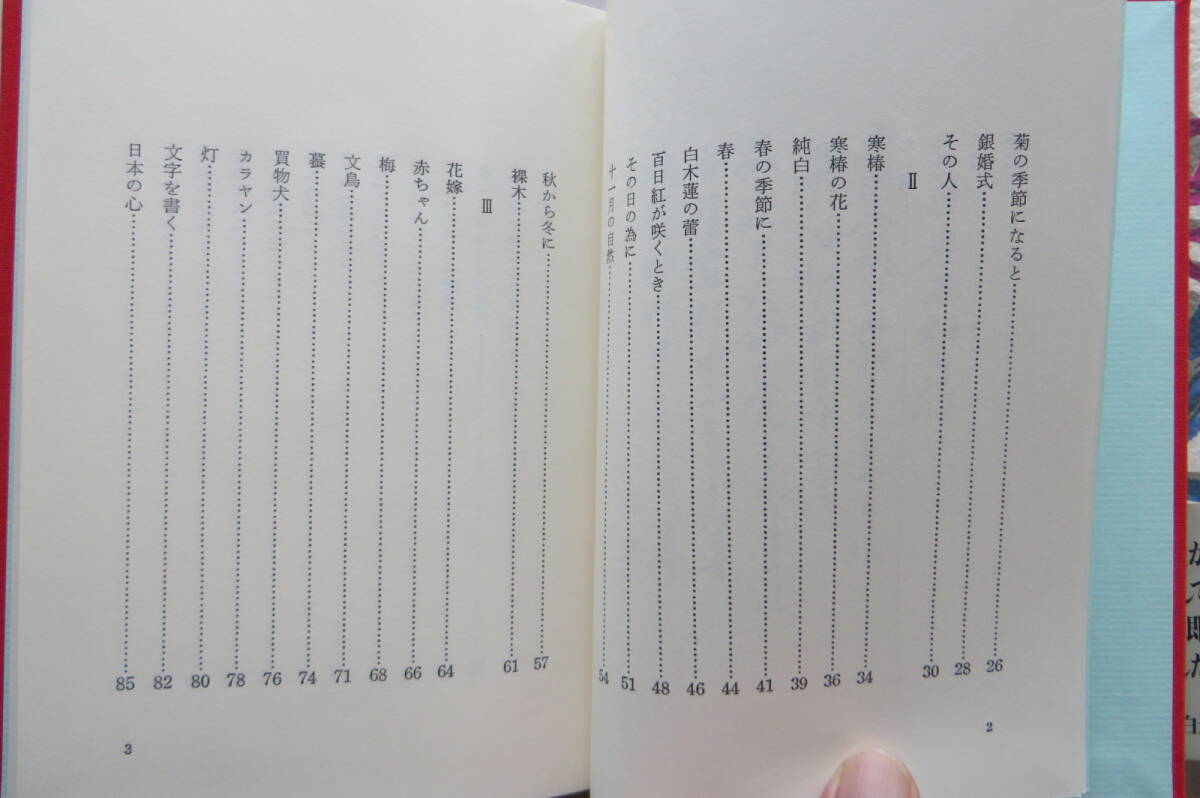 菊の季節になると………26
銀婚式………28
その人………30
Ⅱ
寒椿………34
寒椿の花………36
純白………39
春の季節に………41
春………44
白木蓮の蕾………46
百日紅が咲くとき………48
その日の為に………51
十一月の自然………54
2
秋から冬に………57
裸木………61
Ⅲ
花嫁………64
赤ちゃん………66
梅………68
文鳥………71
蟇………74
買物犬………76
カラヤン………78
灯………80
文字を書く………82
日本の心………85
3